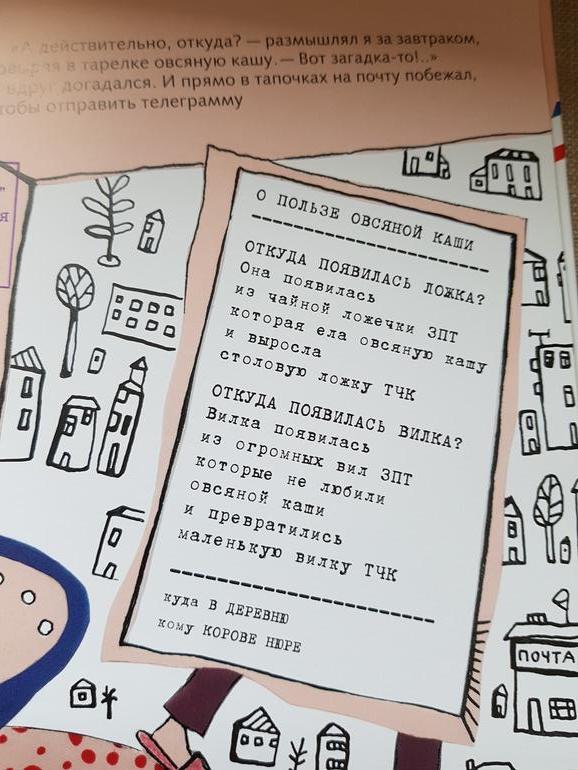 «А действительно, откуда? — размышлял я за завтраком,
в тарелке овсяную кашу. — Вот загадка-то!..»
вдруг догадался. И прямо в тапочках на почту побежал,
чтобы отправить телеграмму
я
О ПОЛЬЗЕ ОВСЯНОЙ КАШИ
ОТКУДА ПОЯВИЛАСЬ ЛОЖКА?
Она появилась
из чайной ложечки ЗПТ
которая ела овсяную кашу
и выросла
столовую ложку ТЧК
ОТКУДА ПОЯВИЛАСЬ ВИЛКА?
Вилка появилась
из огромных вил ЗПТ
которые не любили
овсяной каши
и превратились
маленькую вилку ТЧК
куда В ДЕРЕВНЮ
кому КОРОВЕ НЮРЕ
ПОЧТА